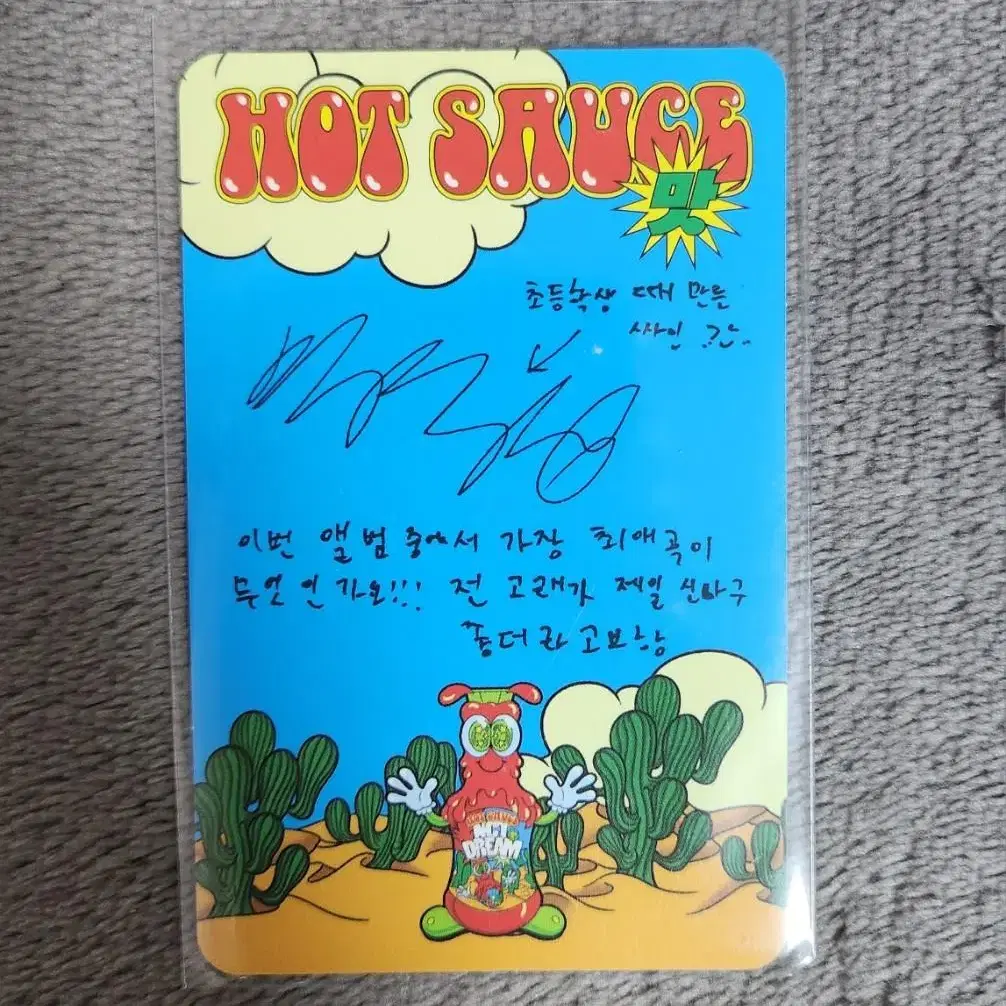 HOT SAUCE
맛
초등학생 때 만든
싸인
이번 앨범 중에서 가장 최애곡이
무엇인가요!!! 전 고래가 제일 신나구
좋더라고요
NCT
DREAM